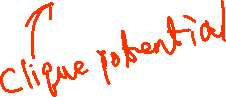 clique potential